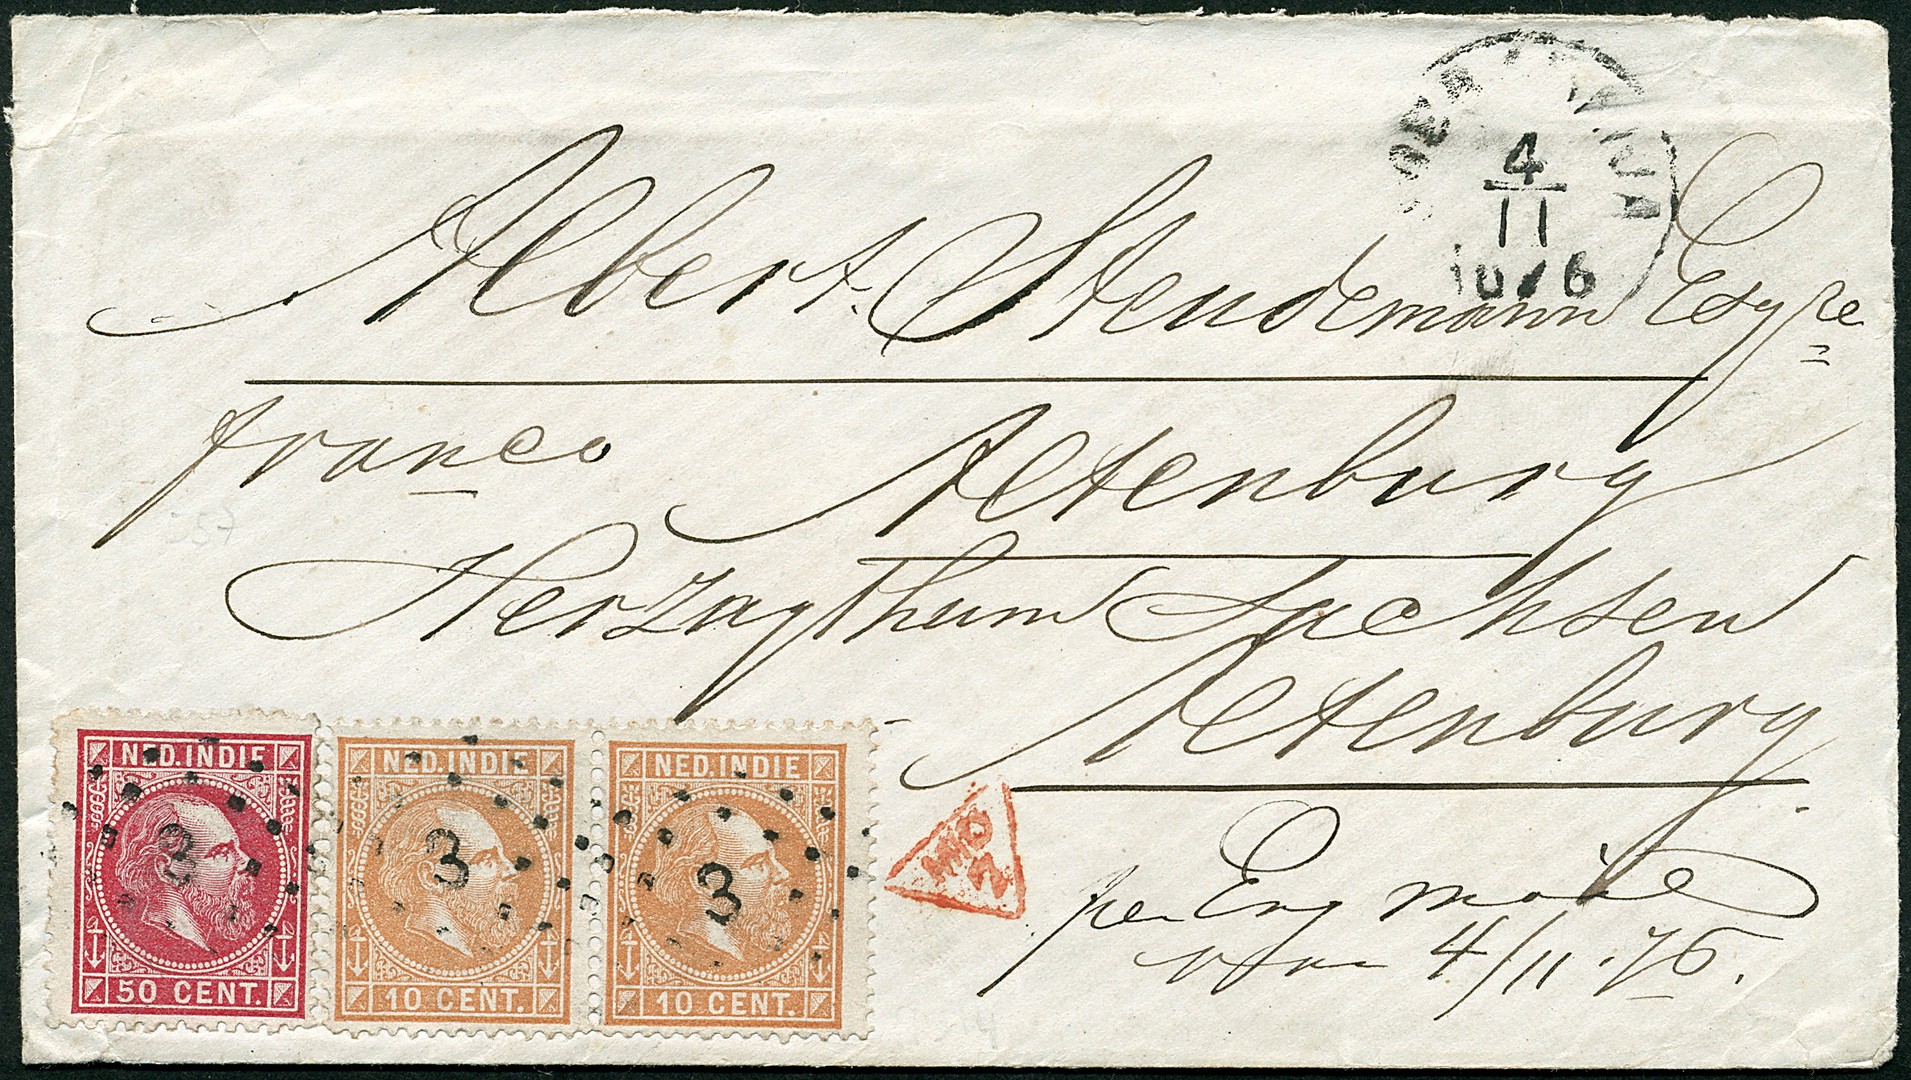 4
11
1876
Albert Steudemann Esqre
franco
Altenburg
Herzogthum Sachsen
Altenburg
NED. INDIE
3
50 CENT.
NED. INDIE
3
10 CENT.
NED. INDIE
3
10 CENT.
per Eng
4/11.76.